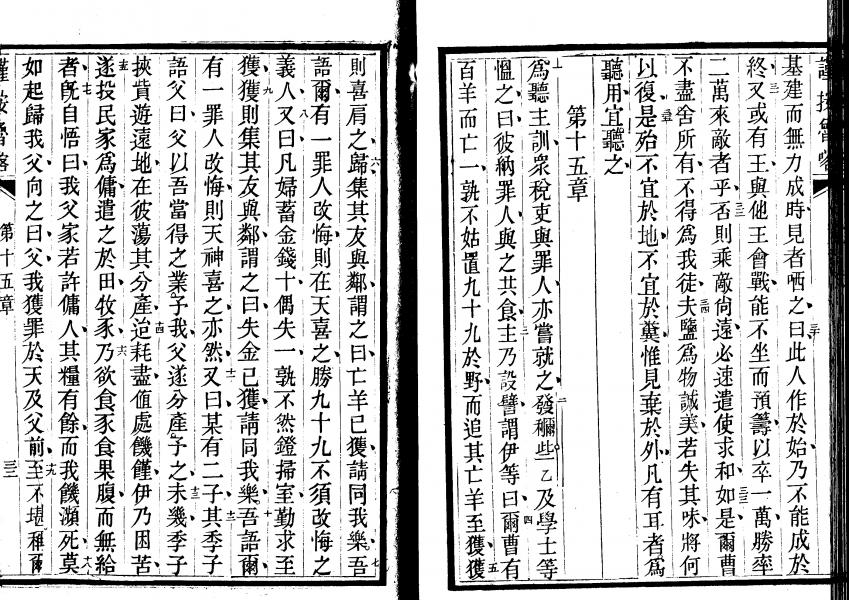 基建而無力成時見者哂之曰三十此人作於始乃不能成於
終三一又或有王與他王會戰能不坐而預籌以卒一萬勝率
二萬來敵者乎三二否則乘敵尙遠必速遣使求和三三如是爾曹
不盡舍所有不得為我徒三四夫鹽為物誠美若失其味將何
以復三五是殆不宜於地不宜於糞惟見棄於外凡有耳者為
聽用宜聽之
第十五章
一為聽主訓衆稅吏與罪人亦嘗就之二發穪些乙及學士等
慍之曰彼納罪人與之共食三主乃設譬謂伊等曰四爾曹有
百羊而亡一孰不姑置九十九於野而追其亡羊至獲五獲
則喜肩之六歸集其友與鄰謂之曰亡羊已獲請同我樂七吾
語爾有一罪人改悔則在天喜之勝九十九不須改悔之
義人八又曰凡婦蓄金錢十偶失一孰不然鐙掃室勤求至
獲九獲則集其友與鄰謂之曰失金已獲請同我樂十吾語爾
有一罪人改悔則天神喜之亦然十一又曰某有二子十二其季子
語父曰父以吾當得之業予我父遂分產予之十三未幾季子
挾貲遊遠地在彼蕩其分產十四迨耗盡値處饑饉伊乃困苦
十五遂投民家為傭遣之於田牧豕十六乃欲食豕食果腹而無給
者十七旣自悟曰我父家若許傭人其糧有餘而我饑瀕死十八莫
如起歸我父向之曰父我獲罪於天及父前十九至不堪稱爾
謹按魯
第十五章